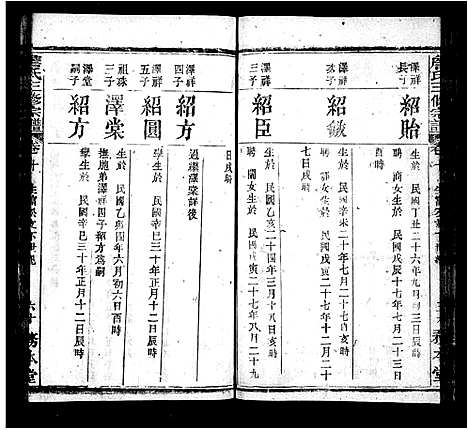 澤祥長子
紹貽
生於 民國丁丑二十六年九月初三日
酉時
聘 商女生於 民國戊寅二十七年七月十一日
澤祥次子
紹敏
生於 民國辛未二十年七月二十一日亥時
聘 鄒女生於 民國戊寅二十七年十二月二十
七日戌時
澤祥三子
紹臣
生於 民國乙亥二十四年三月十八日亥時
聘 閻女生於 民國戊寅二十七年八月二十九
日戌時
澤祥四子
紹方
過繼澤棠詳後
澤祥五子
紹圓
生於 民國辛巳三十年正月十二日辰時
祖球三子
澤棠
生於 民國乙亥四年六月初六日酉時
撫胞弟澤祥四子紹方為嗣
澤堂嗣子
紹方
孿生於 民國辛巳三十年正月十二日辰時
詹氏三修宗譜
卷十
六十
務本堂